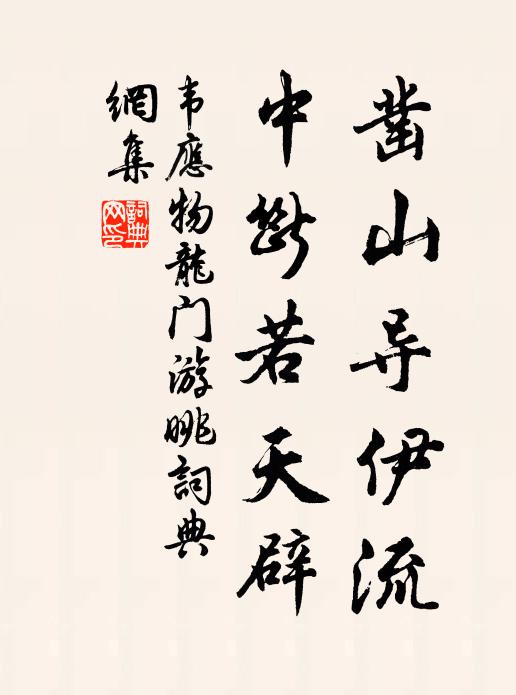 凿山导伊流
中断若天辟
韦應物龍门游眺詞典
網集
詞典
网印